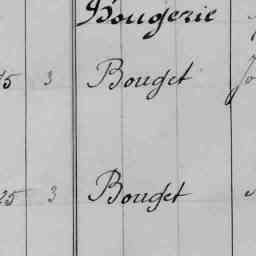 Bougerie
25 3 Bouget
25 3 Bouget